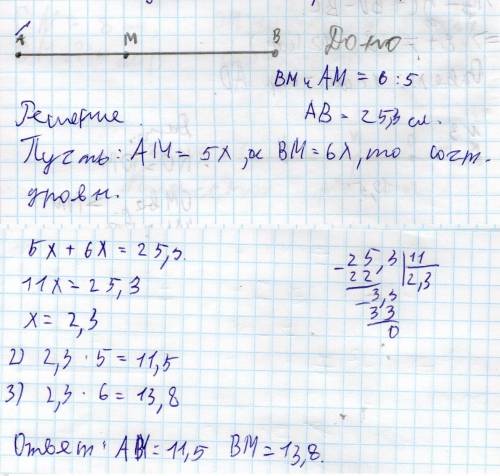 A M B
Дано
BM и AM = 6 : 5
AB = 25,3 см.
Решение.
Пусть: AM = 5x, а BM = 6x, то сост.
уровн.
5x + 6x = 25,3.
11x = 25,3
x = 2,3
2) 2,3 · 5 = 11,5
3) 2,3 · 6 = 13,8
-25,3 | 11
22 | 2,3
-3,3
33
0
Ответ: AM = 11,5 BM = 13,8.